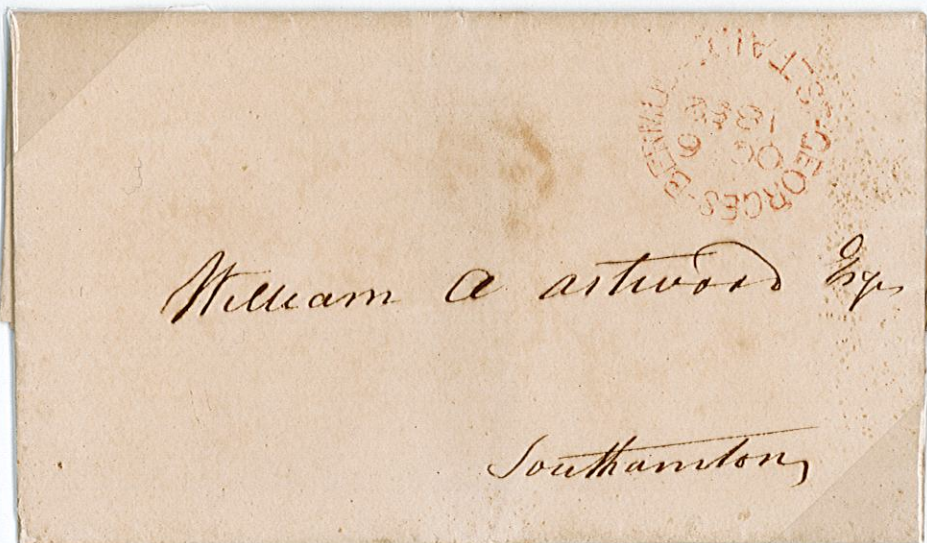 ST GEORGES BERMU
PAID
OC 6
18
William A astwood Esqr
Southamton